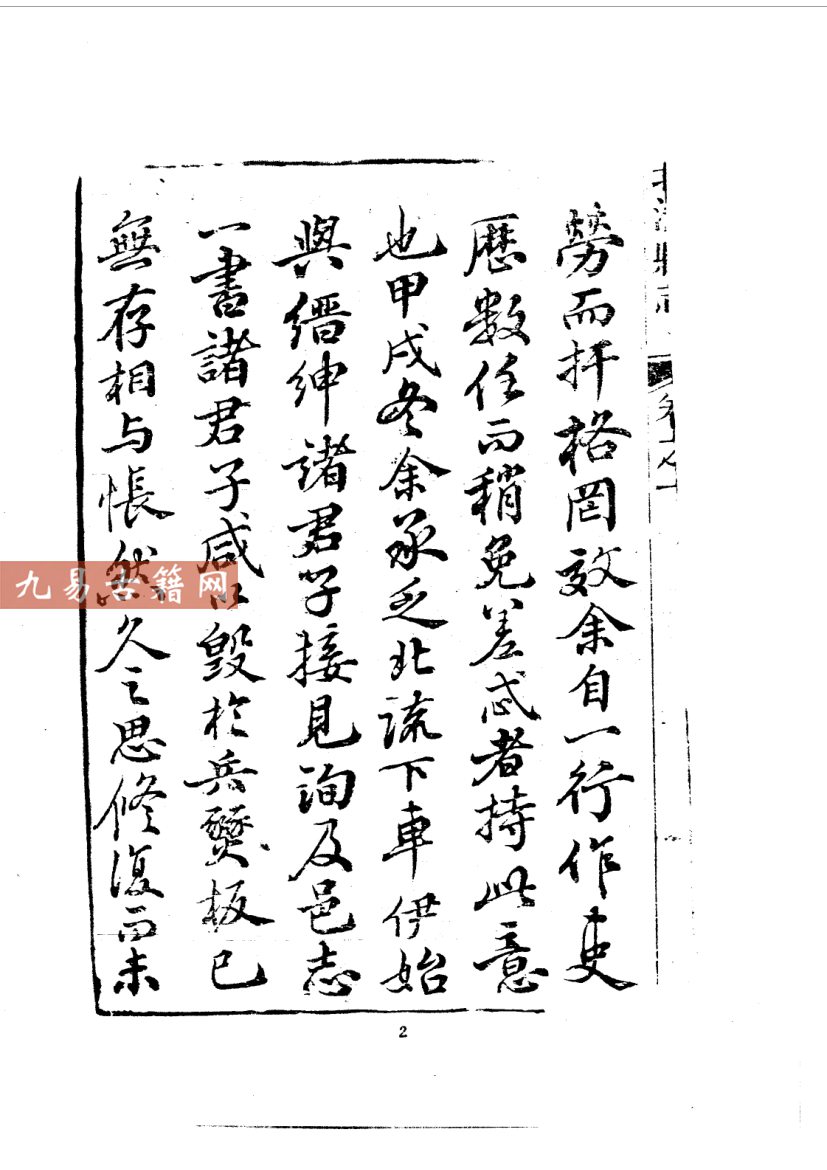 勞而扞格罔效余自一行作吏
歷數任而稍免差忒者持此意
也甲戌冬余承乏北流下車伊始
與縉紳諸君子接見詢及邑志
一書諸君子咸以毀於兵燹板已
無存相与悵然久之思修復而未
九易古籍网
2